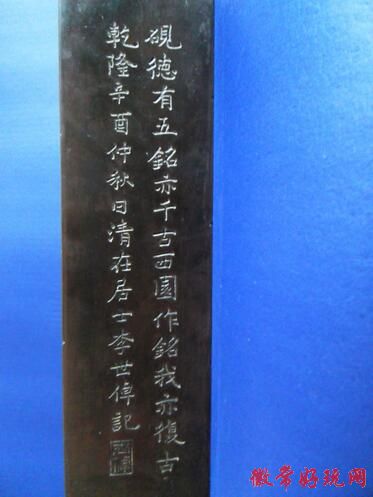 硯德有五銘亦千古西園作銘我亦復古
乾隆辛酉仲秋日清在居士李世倬記
微常好玩网